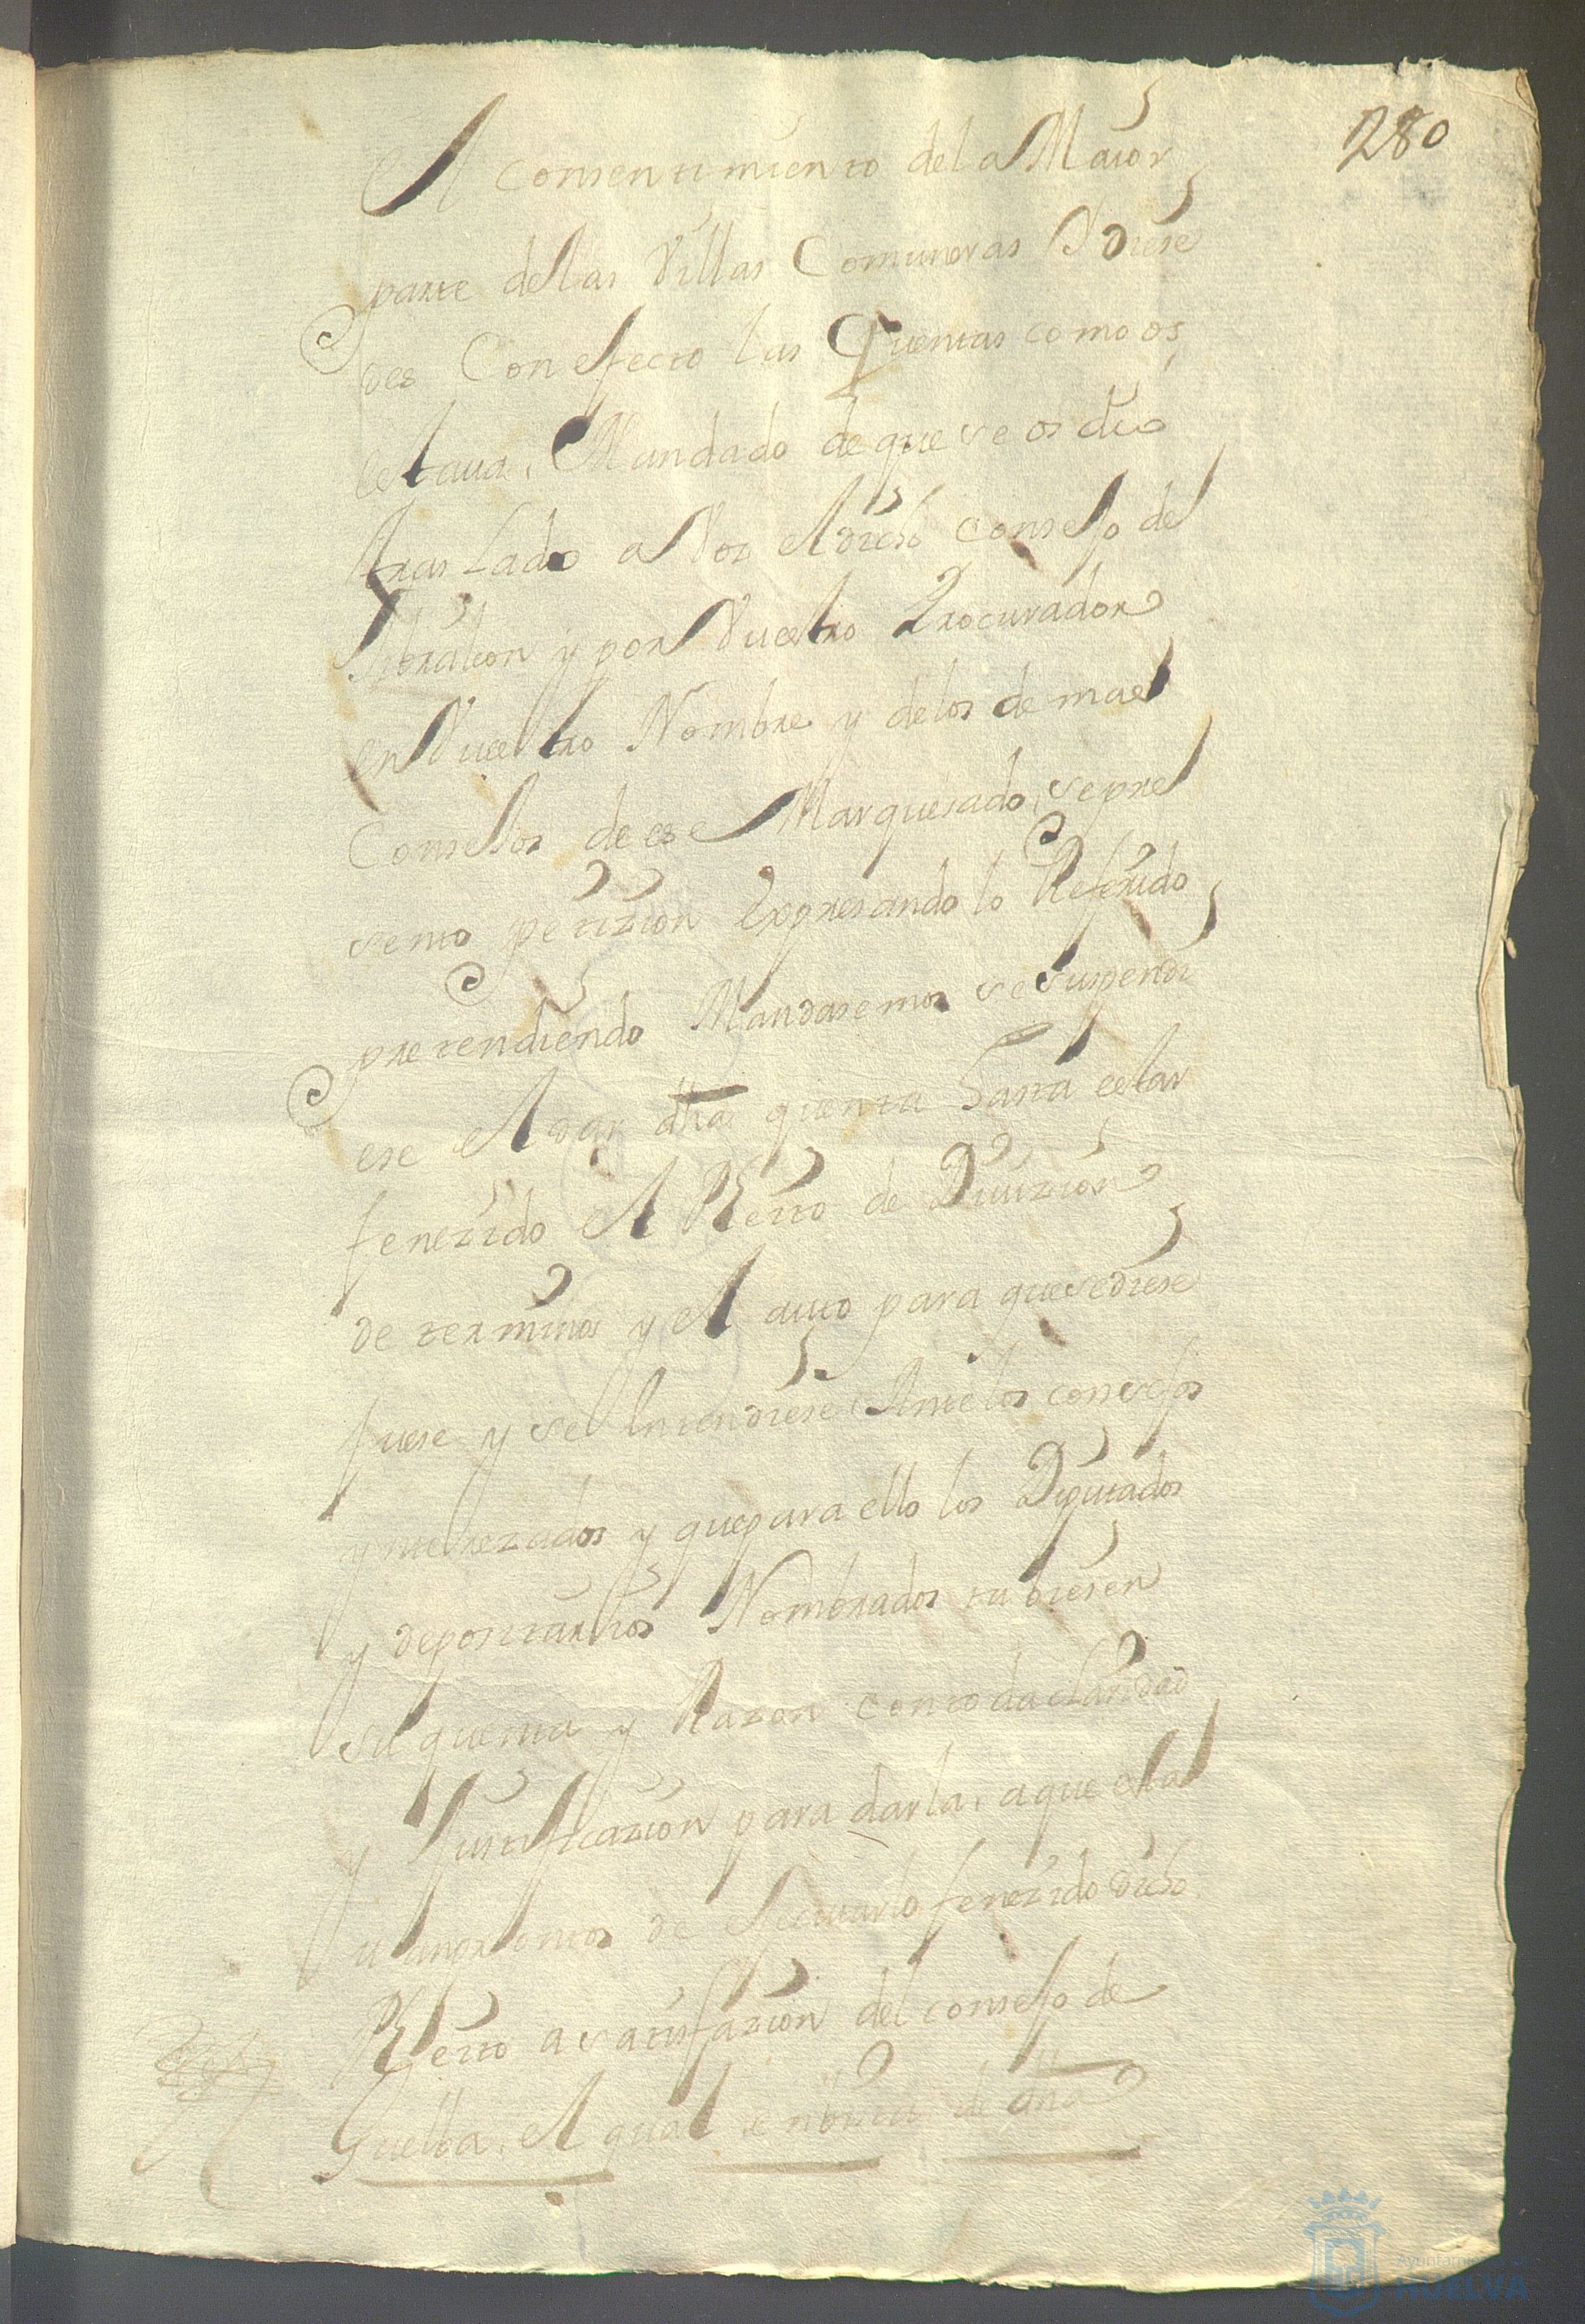 280
el consentimiento de la Maior
parte de las Villas Comuneras Y diese
des Con efecto las Quentas como os
estaua Mandado de que se os dio
traslado a Vos el dicho consejo de
Jibraleon y por Vuestro Procurador
en Vuestro Nombre y de los demas
Consejos de ese Marquesado se pre
sento petizion Expresando lo Referido
pretendiendo Mandasemos se suspendi
ese el dar dha quenta hasta estar
fenezido el Pleito de Diuizion
de terminos y el auto para que se diese
fuese y se Entendiese Ante los consejos
ynterezados y que para ello los Diputados
y depositarios Nombrados tubiesen
su quenta y Razon con toda claridad
y Justificazion para darla, a que esta
uan promtos de Efectuarlo fenezido dicho
Pleito a satisfazion del consejo de
Guelba, el qual en vista de dha
Ayuntamiento
HUELVA